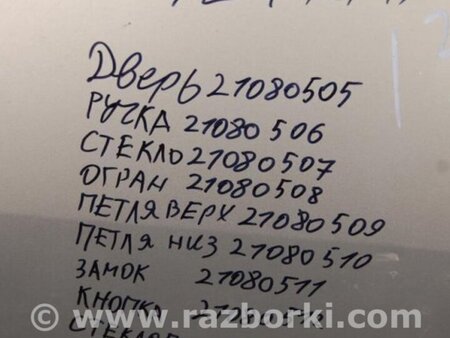 Дверь 21080505
РУЧКА 21080506
СТЕКЛО 21080507
ОГРАН 21080508
ПЕТЛЯ ВЕРХ 21080509
ПЕТЛЯ НИЗ 21080510
ЗАМОК 21080511
КНОПКА
© www.razborki.com